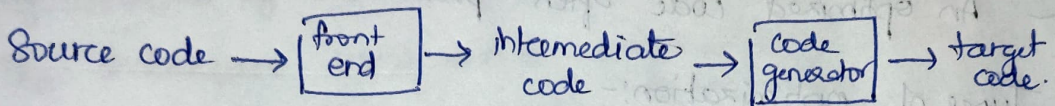 Source code → front end → intermediate code → code generator → target code.